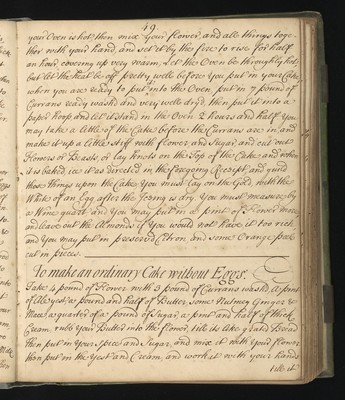 49.
your Oven is hot, then mix your flower, and all things toge-
ther with your hand, and set it by the fire to rise for half
an hour, covering up very warm, Let the Oven be throughly hot,
but let the heat be off pretty well before you put in your Cake,
when you are ready to put into the Oven put in 7 pound of
Currans ready washd and very well dryd, then put it into a
paper hoop and let it stand in the Oven 2 hours and half You
may take a little of the Cake before the Currans are in, and
make it up a little stif with flower and Sugar, and cut out
Flowers or Beasts, or lay knots on the Top of the Cake and when
it is baked, ice it as directed in the foregoing Receipt, and guild
those things upon the Cake, You must lay on the Gold with the
White of an Egg after the Iceing is dry You must measure by
a Wine quart, and You may put in a pint of Flower more,
and leave out the Almonds if You would not have it too rich,
and You may put in preserved Citron and some Orange peel
cut in pieces.
To make an ordinary Cake without Eggs.
Take 4 pound of Flower with 3 pound of Currans washd, a pint
of Ale yest, a pound and half of Butter, some Nutmeg Ginger &
Mace, a quarter of a pound of Sugar, a pint and half of thick
Cream, rub your Butter into the flower, till its like grated Bread
then put in Your Spice and Sugar, and mix it with your flower
then put in the Yest and Cream, and work it with your hands
till it